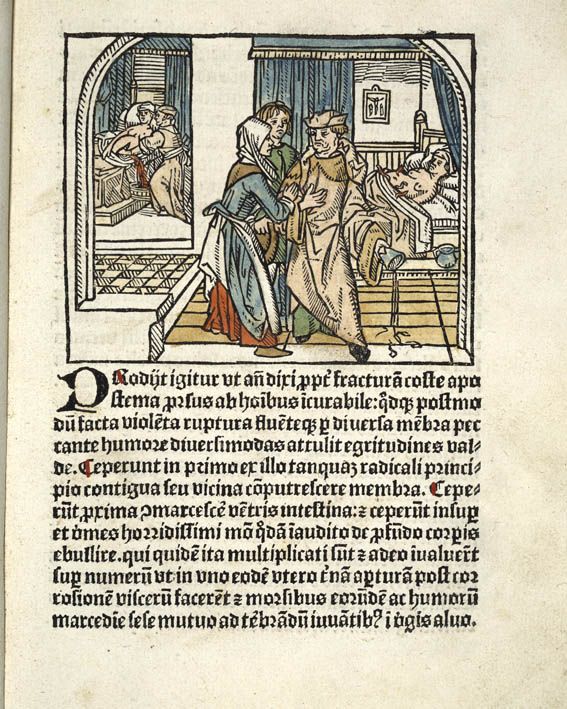 PRodijt igitur vt añ dixi ꝓpt̃ fracturā coste apo
stema ꝓrsus ab hoĩbus ĩcurabile: qđqꝫ postmo
dũ facta violẽta ruptura fluẽteqꝫ ꝑ diversa mẽbra pec
cante humore diversimodas attulit egritudines val-
de. Ceperunt in primo ex illo tanquaꝫ radicali princi-
pio contigua seu vicina cõputrescere membra. Cepe-
rũt ꝓxima ⁊ marcescẽ vẽtris intestina: ⁊ ceperũt insuꝑ
et v̓mes horridissimi mõ qđã ĩaudito de ꝓfũdo corꝑis
ebullire. qui quidẽ ita multiplicati sũt ⁊ adeo ĩvaluẽt
suꝑ numerũ vt in vno eodẽ vtero t̓nã aꝑturã post cor
rosionẽ viscerũ facerẽt ⁊ morsibus eorũdẽ ac humorũ
marcedĩe sese mutuo ad tẽbrãdũ iuvãtibꝰ ĩ v̓gis alvo.